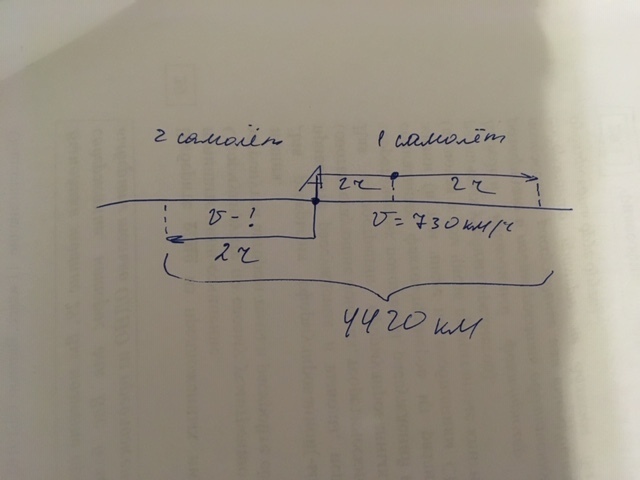 2 самолёт 1 самолёт
А 2ч 2ч
v - ! v = 730 км/ч
2ч
4420 км